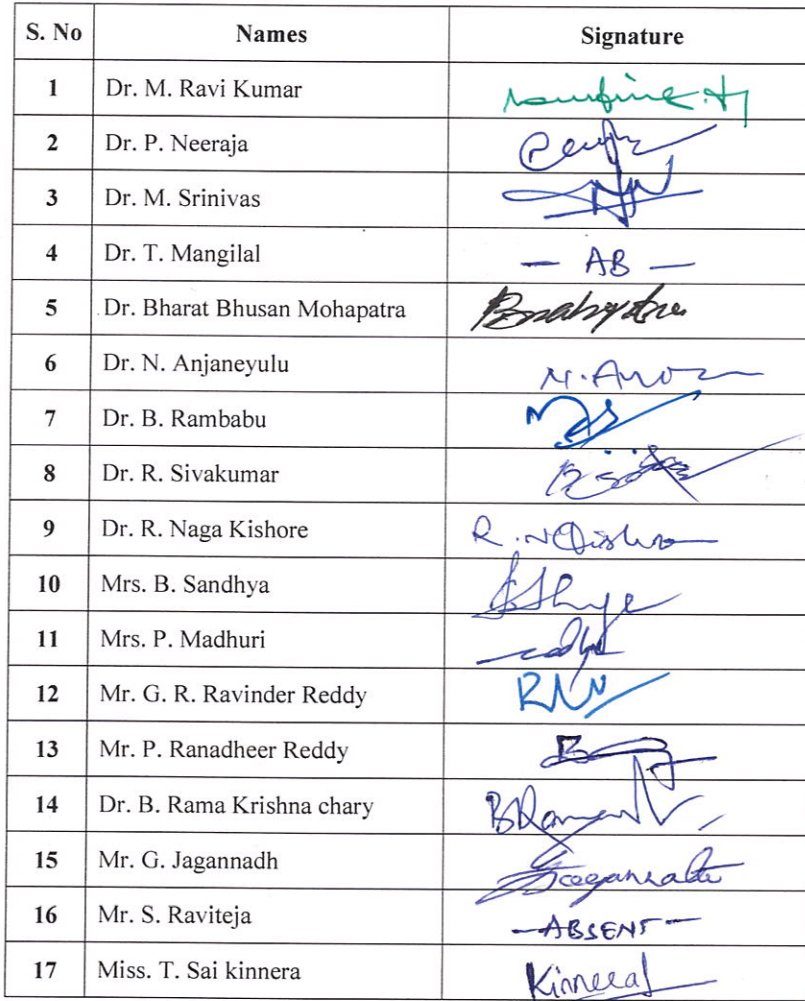 S. No Names Signature
1 Dr. M. Ravi Kumar
2 Dr. P. Neeraja
3 Dr. M. Srinivas
4 Dr. T. Mangilal — AB —
5 Dr. Bharat Bhusan Mohapatra
6 Dr. N. Anjaneyulu
7 Dr. B. Rambabu
8 Dr. R. Sivakumar
9 Dr. R. Naga Kishore
10 Mrs. B. Sandhya
11 Mrs. P. Madhuri
12 Mr. G. R. Ravinder Reddy
13 Mr. P. Ranadheer Reddy
14 Dr. B. Rama Krishna chary
15 Mr. G. Jagannadh
16 Mr. S. Raviteja —ABSENT—
17 Miss. T. Sai kinnera